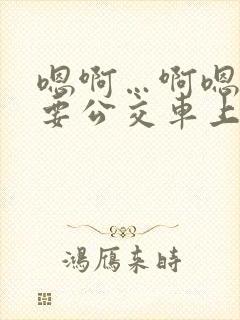 嗯啊…啊嗯
要公交车上
鴻雁来時